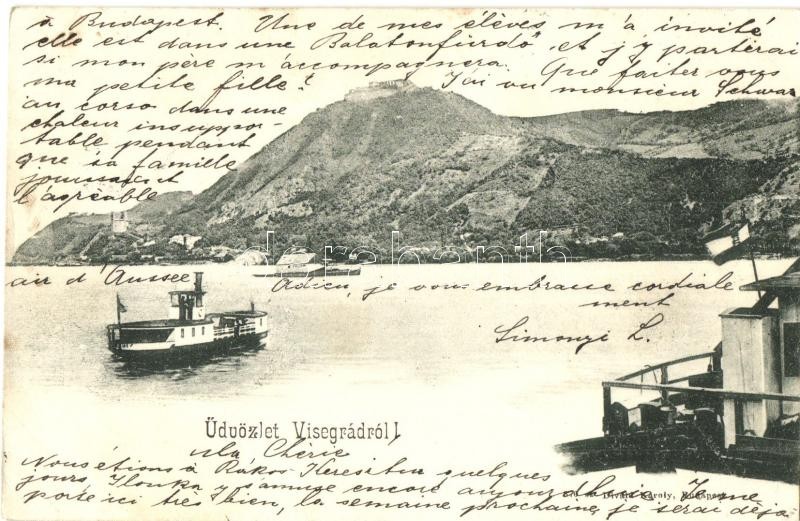 à Budapest. Une de mes élèves m'a invité
elle est dans une Balatonfürdő, et j'y partirai
si mon père m'accompagnera. Que faites vous
ma petite fille? J'ai vu monsieur Schwar
au corso dans une
chaleur insuppor-
table pendant
que sa famille
jouissait
l'agréable
air d'Aussee Adieu, je vous embrasse cordiale
ment
Simonyi L.
Üdvözlet Visegrádról!
Ma Chérie
Nous étions à Rákos Keresztur quelques
jours, Ilonka y s'amuse encore aujourd'hui. Je me
porte ici très bien, la semaine prochaine, je serai déjà
Divald Károly, Budapest
darabanth